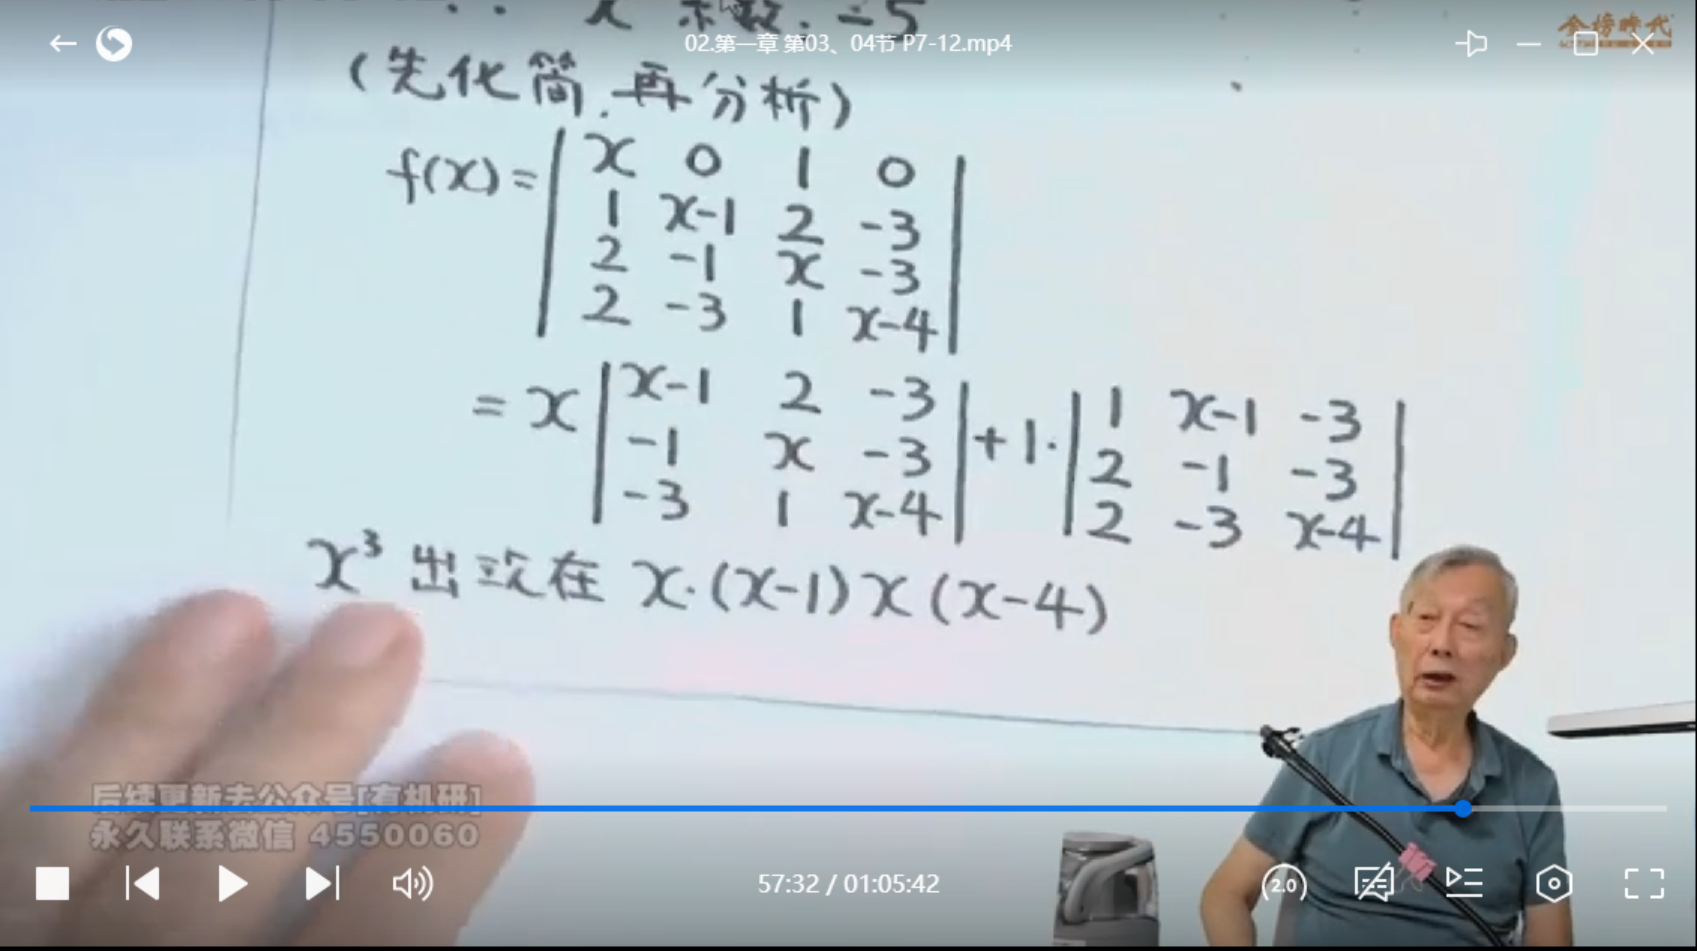 x 系数. = -5
02.第一章 第03、04节 P7-12.mp4
金榜時代
(先化简.再分析)
f(x)= | x 0 1 0 |
| 1 x-1 2 -3 |
| 2 -1 x -3 |
| 2 -3 1 x-4 |
= x | x-1 2 -3 | + 1· | 1 x-1 -3 |
| -1 x -3 | | 2 -1 -3 |
| -3 1 x-4 | | 2 -3 x-4 |
x³ 出现在 x·(x-1)x(x-4)
后续更新去公众号[有机研]
永久联系微信 4550060
57:32 / 01:05:42
2.0